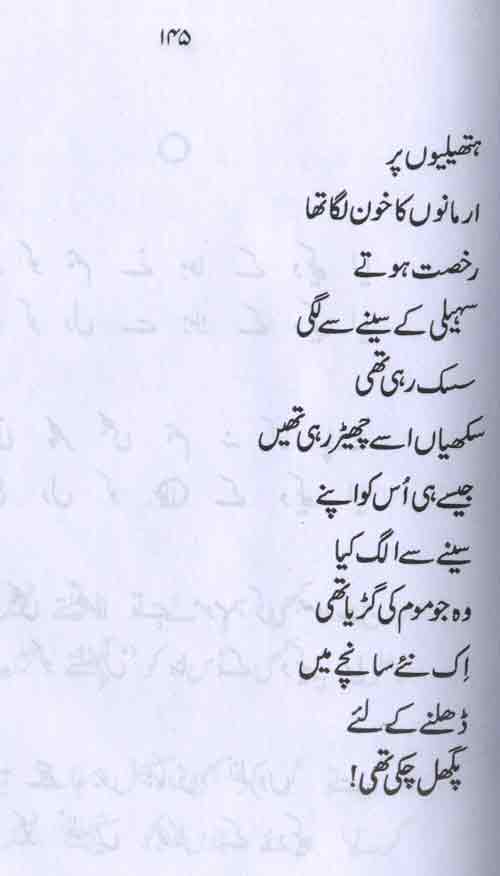 ۱۴۵
ہتھیلیوں پر
ارمانوں کا خون لگا تھا
رخصت ہوتے
سہیلی کے سینے سے لگی
سسک رہی تھی
سکھیاں اسے چھیڑ رہی تھیں
جیسے ہی اُس کو اپنے
سینے سے الگ کیا
وہ جو موم کی گڑیا تھی
اِک نئے سانچے میں
ڈھلنے کے لئے
پگھل چکی تھی!